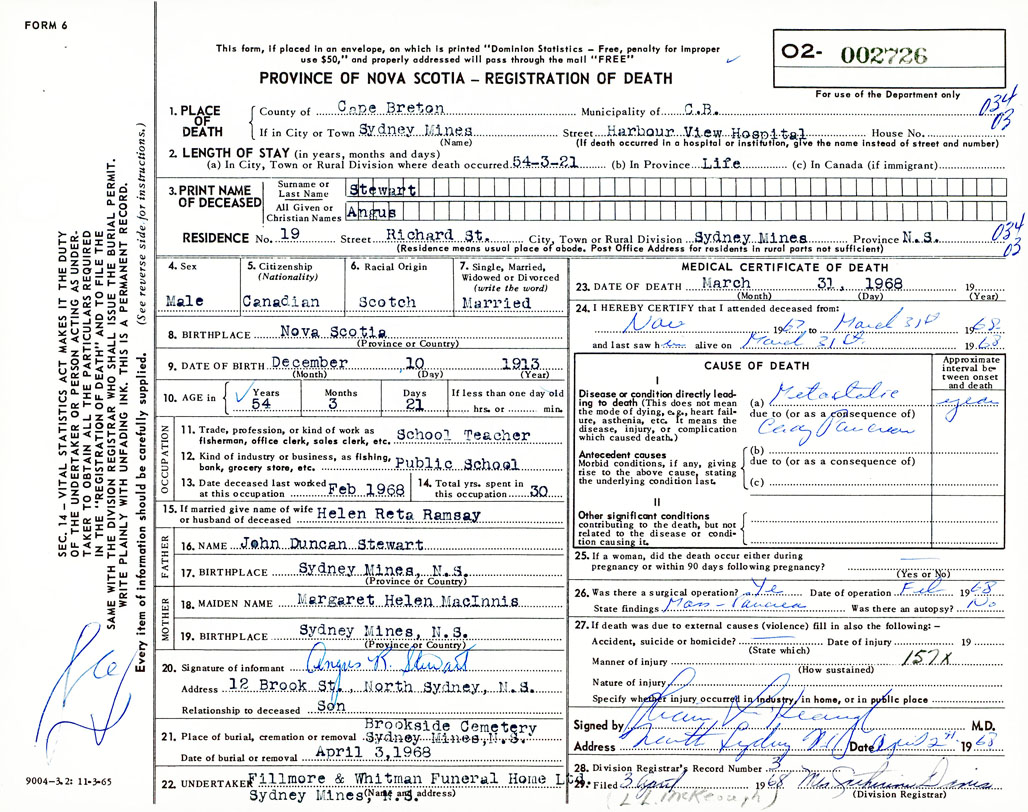 FORM 6
This form, if placed in an envelope, on which is printed "Dominion Statistics – Free, penalty for improper
use $50," and properly addressed will pass through the mail "FREE"
PROVINCE OF NOVA SCOTIA – REGISTRATION OF DEATH
02- 002726
For use of the Department only
034
03
1. PLACE OF DEATH
County of Cape Breton Municipality of C.B.
If in City or Town Sydney Mines Street Harbour View Hospital House No.
(Name) (If death occurred in a hospital or institution, give the name instead of street and number)
2. LENGTH OF STAY (in years, months and days)
(a) In City, Town or Rural Division where death occurred 54-3-21 (b) In Province Life (c) In Canada (if immigrant)
3. PRINT NAME OF DECEASED
Surname or Last Name Stewart
All Given or Christian Names Angus
RESIDENCE No. 19 Street Richard St. City, Town or Rural Division Sydney Mines Province N.S.
(Residence means usual place of abode. Post Office Address for residents in rural parts not sufficient)
034
03
4. Sex
Male
5. Citizenship
(Nationality)
Canadian
6. Racial Origin
Scotch
7. Single, Married,
Widowed or Divorced
(write the word)
Married
8. BIRTHPLACE Nova Scotia
(Province or Country)
9. DATE OF BIRTH December 10 1913
(Month) (Day) (Year)
10. AGE in Years Months Days If less than one day old
54 3 21 hrs. or min.
OCCUPATION
11. Trade, profession, or kind of work as
fisherman, office clerk, sales clerk, etc. School Teacher
12. Kind of industry or business, as fishing,
bank, grocery store, etc. Public School
13. Date deceased last worked
at this occupation Feb 1968
14. Total yrs. spent in
this occupation 30
15. If married give name of wife
or husband of deceased Helen Reta Ramsay
FATHER
16. NAME John Duncan Stewart
17. BIRTHPLACE Sydney Mines, N.S.
(Province or Country)
MOTHER
18. MAIDEN NAME Margaret Helen MacInnis
19. BIRTHPLACE Sydney Mines, N.S.
(Province or Country)
20. Signature of informant Angus R. Stewart
Address 12 Brook St., North Sydney, N.S.
Relationship to deceased Son
21. Place of burial, cremation or removal Brookside Cemetery
Sydney Mines, N.S.
Date of burial or removal April 3, 1968
22. UNDERTAKER Fillmore & Whitman Funeral Home Ltd.
Sydney Mines, N.S.
(Name and address)
MEDICAL CERTIFICATE OF DEATH
23. DATE OF DEATH March 31, 1968 19
(Month) (Day) (Year)
24. I HEREBY CERTIFY that I attended deceased from:
Nov 1967 to March 31st 1968
and last saw him alive on March 31st 1968
CAUSE OF DEATH
Approximate
interval be-
tween onset
and death
I
Disease or condition directly lead-
ing to death (This does not mean
the mode of dying, e.g., heart fail-
ure, asthenia, etc. It means the
disease, injury, or complication
which caused death.)
(a) Metastatic
due to (or as a consequence of)
Pancreas
Antecedent causes
Morbid conditions, if any, giving
rise to the above cause, stating
the underlying condition last.
(b)
due to (or as a consequence of)
(c)
II
Other significant conditions
contributing to the death, but not
related to the disease or condi-
tion causing it.
25. If a woman, did the death occur either during
pregnancy or within 90 days following pregnancy?
(Yes or No)
26. Was there a surgical operation? Yes Date of operation Feb 1968
State findings Mass-Pancreas Was there an autopsy? No
27. If death was due to external causes (violence) fill in also the following:–
Accident, suicide or homicide? Date of injury 19
(State which)
Manner of injury 157X
(How sustained)
Nature of injury
Specify whether injury occurred in industry, in home, or in public place
Signed by M.D.
Address North Sydney NS Date April 2nd 1968
28. Division Registrar's Record Number 3
29. Filed 3 April 1968 Mrs. Catherine Davis
(Division Registrar)
(L.L. McKeough)
SEC. 14 – VITAL STATISTICS ACT MAKES IT THE DUTY
OF THE UNDERTAKER OR PERSON ACTING AS UNDER-
TAKER TO OBTAIN ALL THE PARTICULARS REQUIRED
IN THE "REGISTRATION OF DEATH" AND TO FILE THE
SAME WITH THE DIVISION REGISTRAR WHO SHALL ISSUE THE BURIAL PERMIT.
WRITE PLAINLY WITH UNFADING INK. THIS IS A PERMANENT RECORD.
Every item of information should be carefully supplied. (See reverse side for instructions.)
9004-3.2: 11-3-65